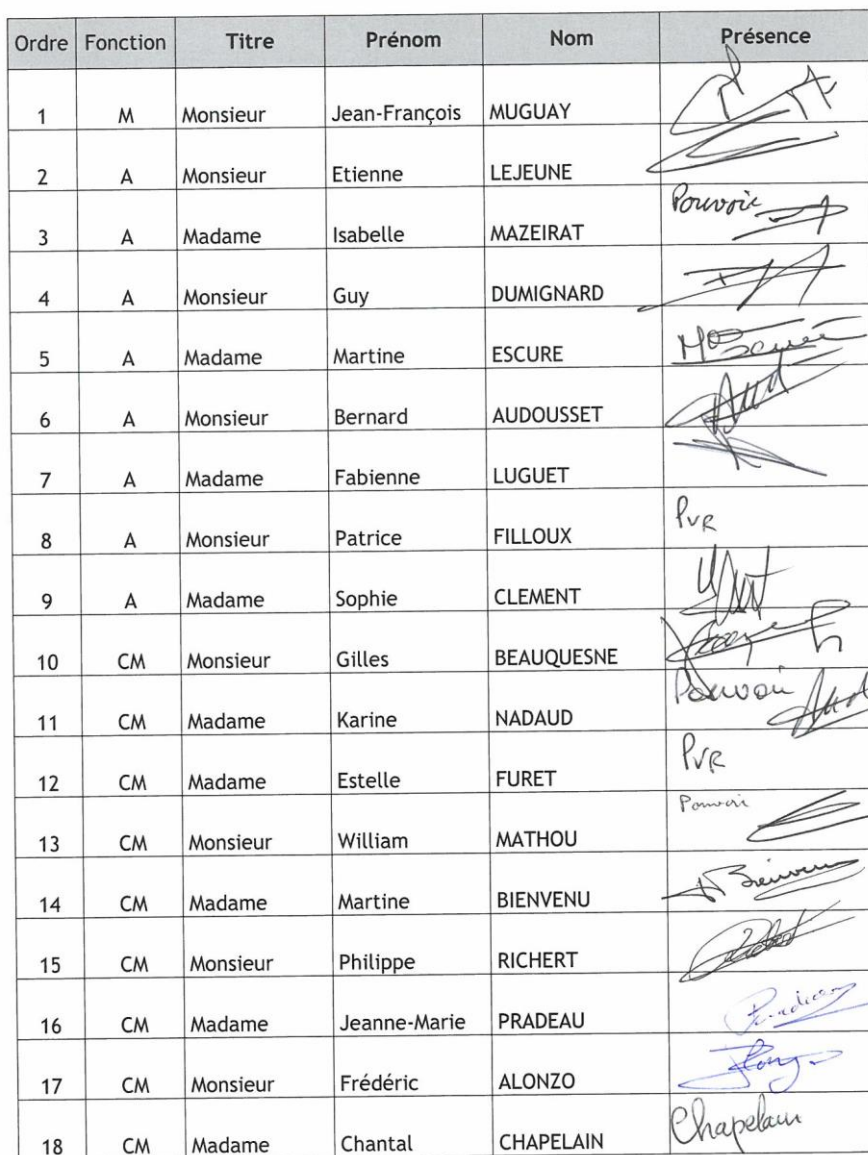 Ordre Fonction Titre Prénom Nom Présence
1 M Monsieur Jean-François MUGUAY
2 A Monsieur Etienne LEJEUNE
3 A Madame Isabelle MAZEIRAT Pouvoir
4 A Monsieur Guy DUMIGNARD
5 A Madame Martine ESCURE
6 A Monsieur Bernard AUDOUSSET
7 A Madame Fabienne LUGUET
8 A Monsieur Patrice FILLOUX PVR
9 A Madame Sophie CLEMENT
10 CM Monsieur Gilles BEAUQUESNE
11 CM Madame Karine NADAUD Pouvoir
12 CM Madame Estelle FURET PVR
13 CM Monsieur William MATHOU Pouvoir
14 CM Madame Martine BIENVENU Bienvenu
15 CM Monsieur Philippe RICHERT
16 CM Madame Jeanne-Marie PRADEAU Pradeau
17 CM Monsieur Frédéric ALONZO
18 CM Madame Chantal CHAPELAIN Chapelain